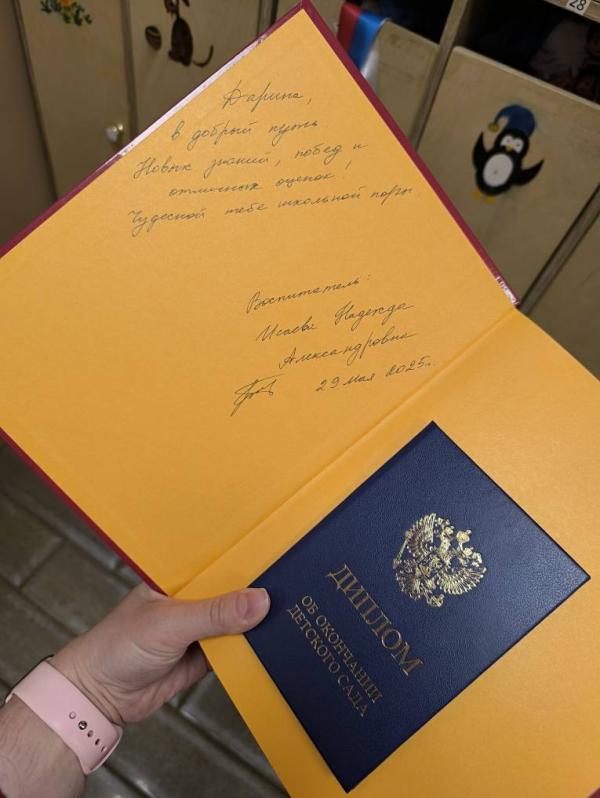 Дарина,
в добрый путь
Новых знаний, побед и
отличных оценок!
Чудесной тебе школьной поры.
Воспитатель:
Исаева Надежда
Александровна
29 мая 2025г.
ДИПЛОМ
ОБ ОКОНЧАНИИ
ДЕТСКОГО САДА
28